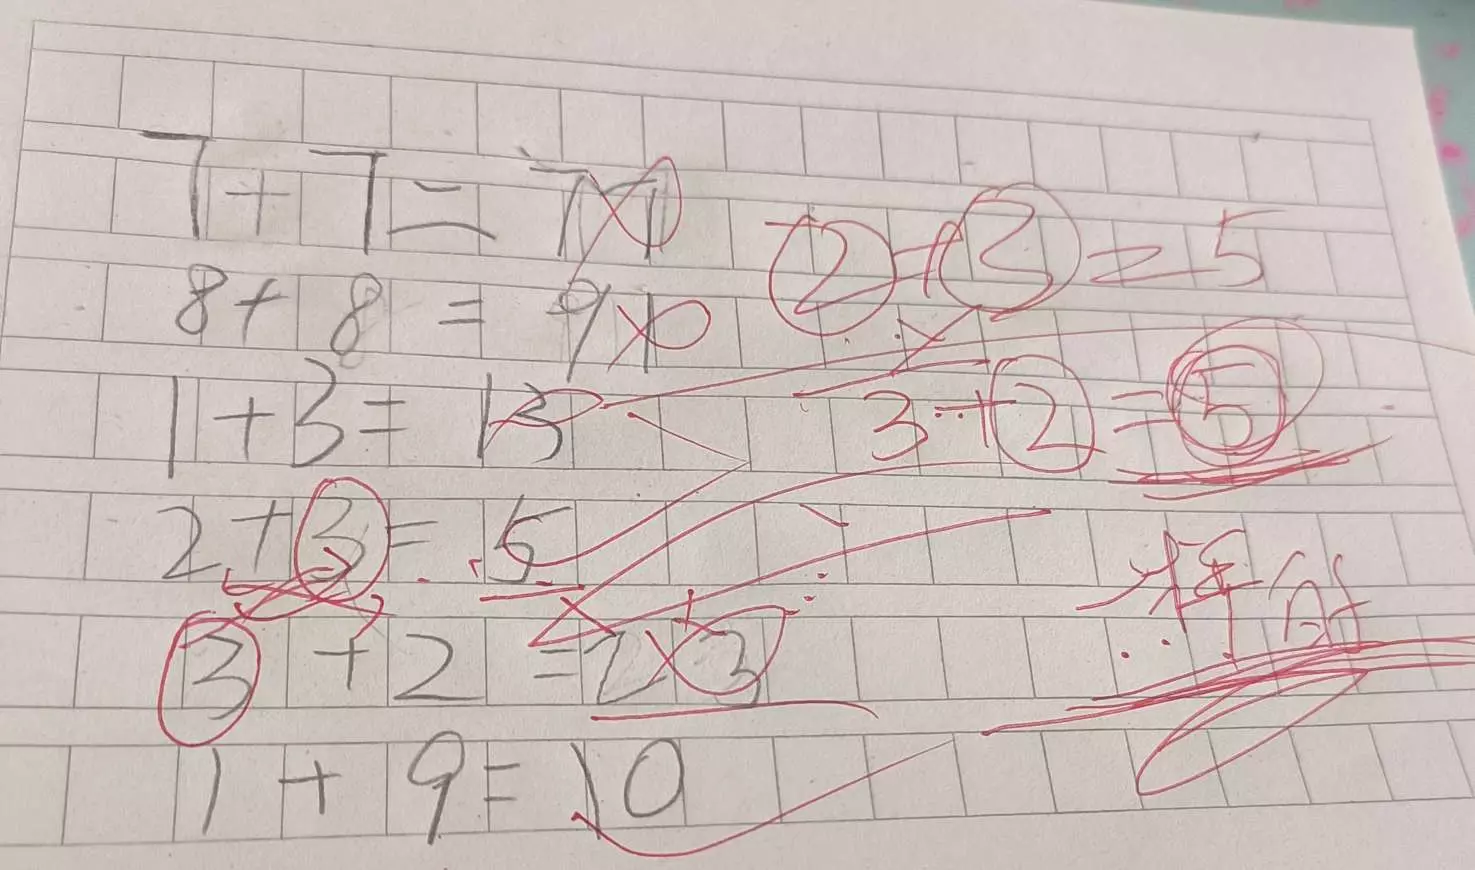 7+7=77
8+8=91
1+3=13
2+3=5
3+2=23
1+9=10
2+3=5
3+2=5